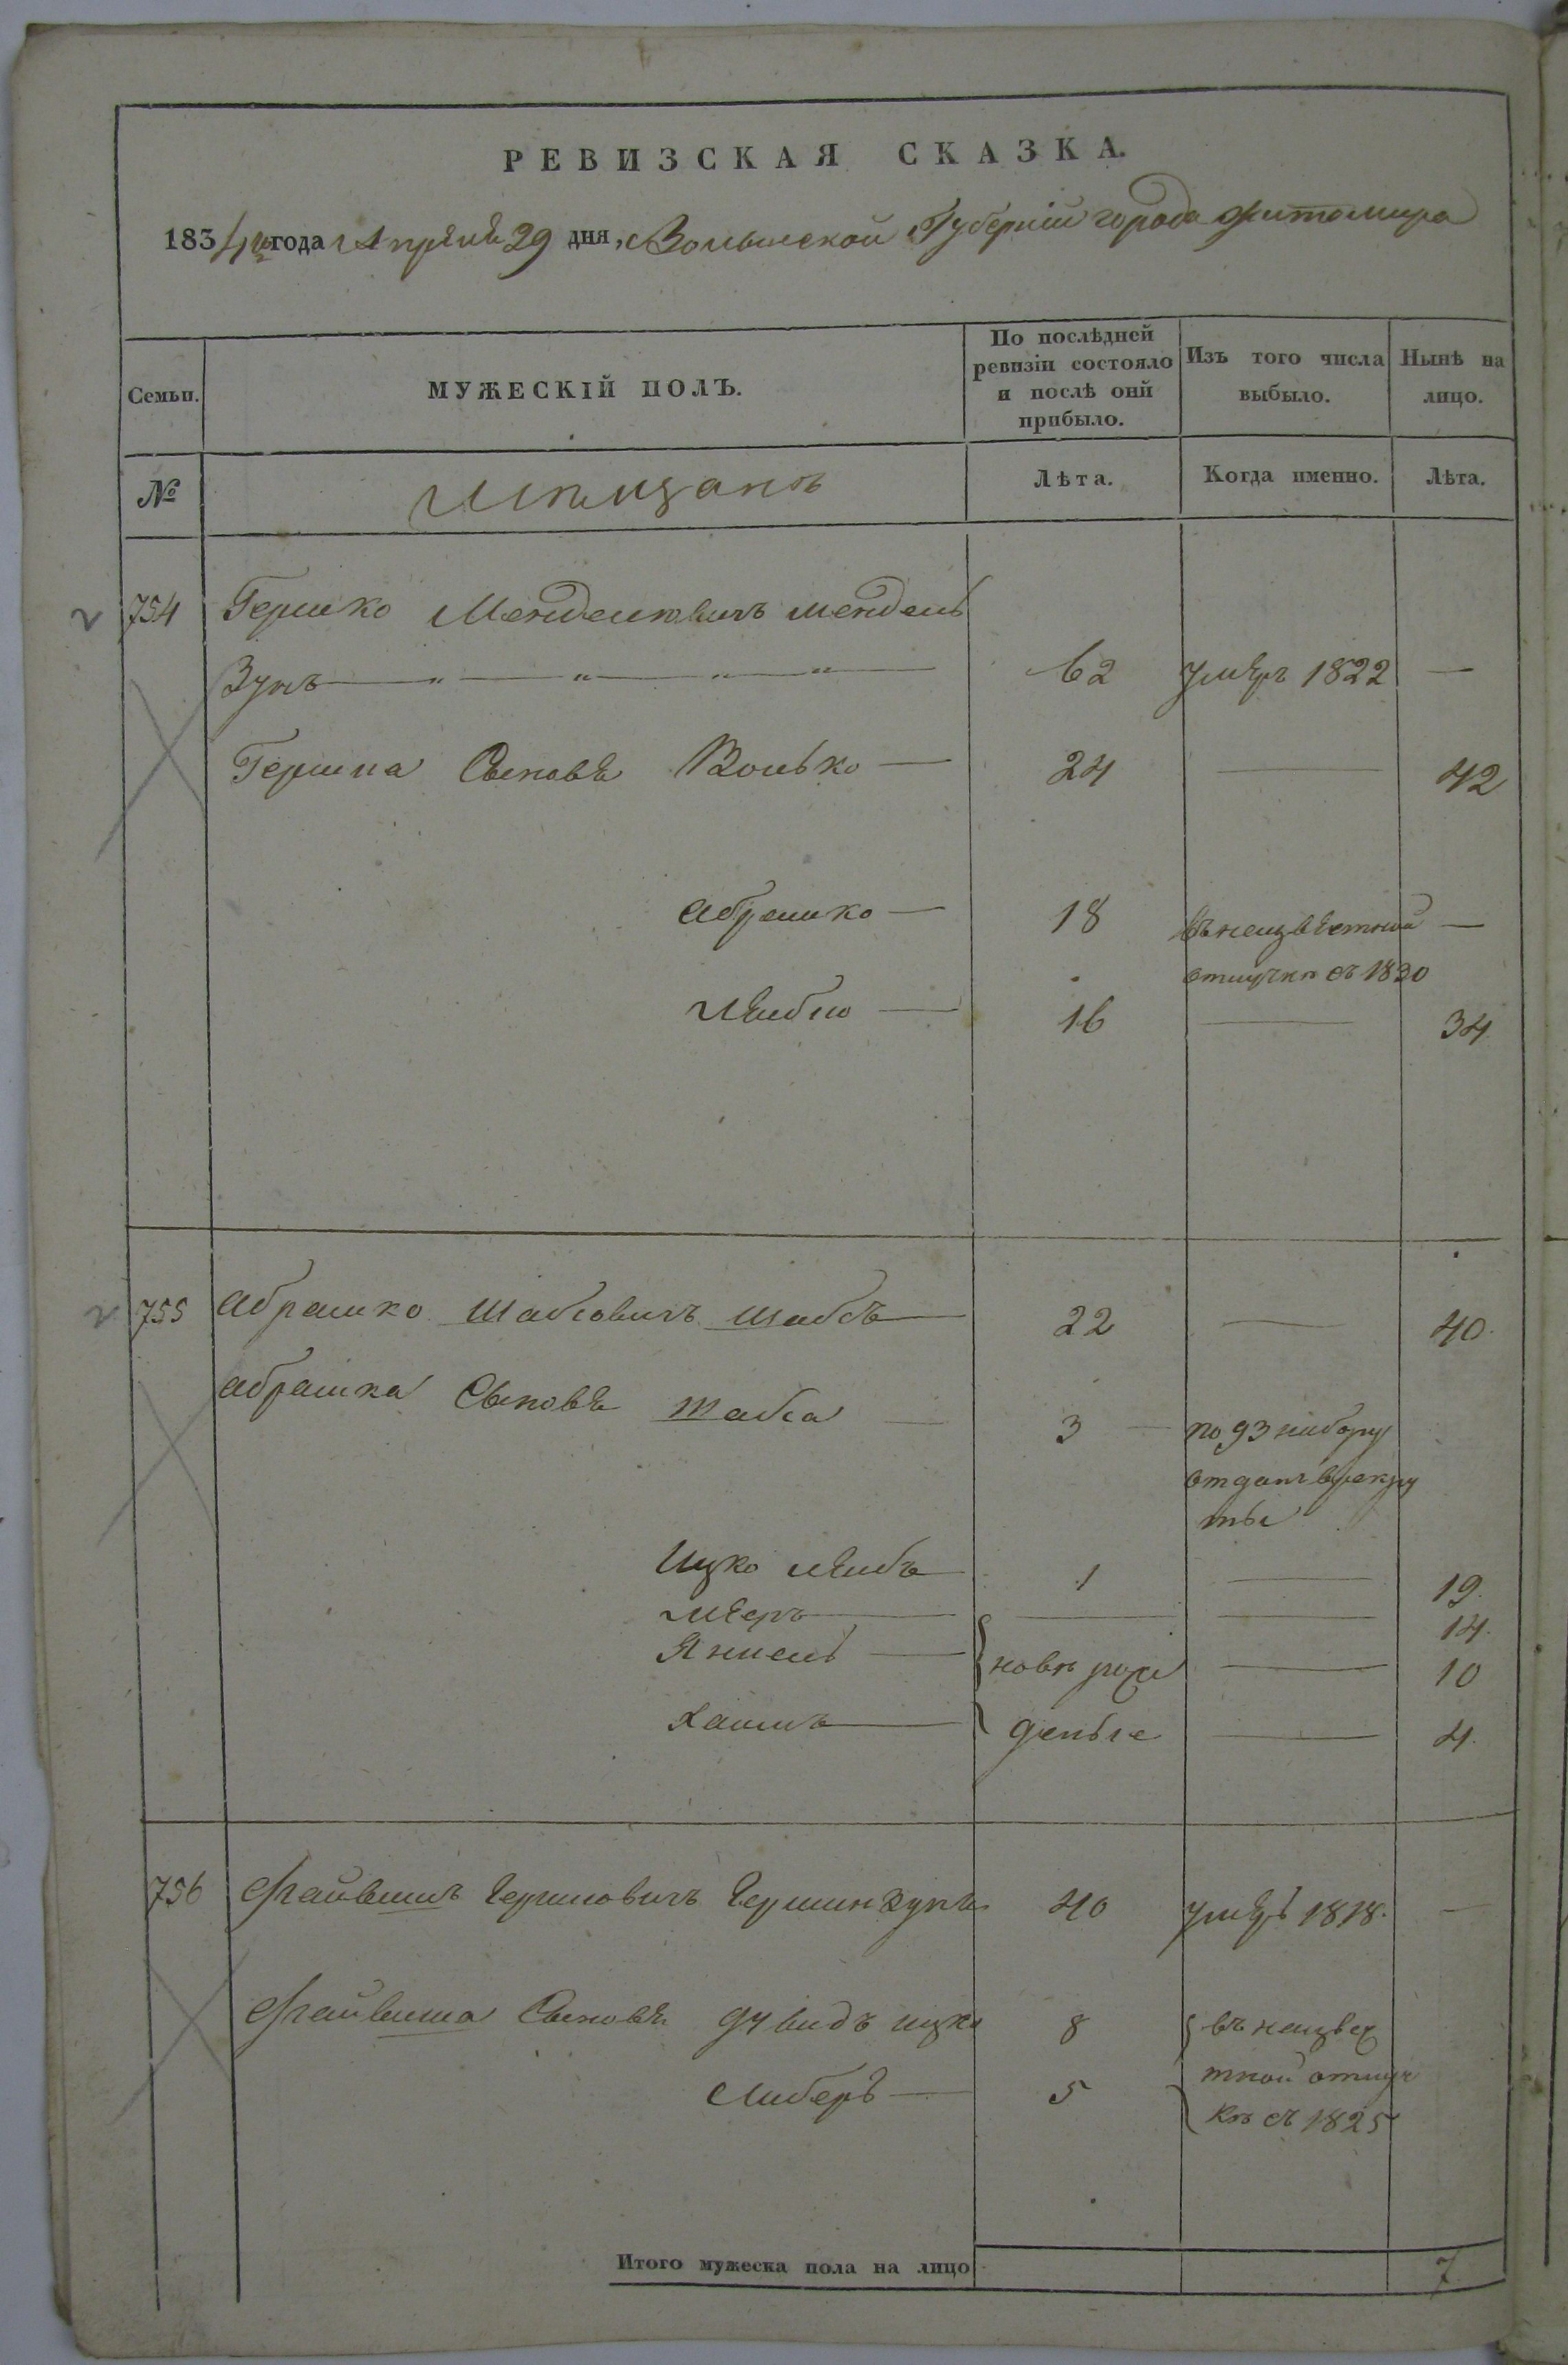 РЕВИЗСКАЯ СКАЗКА.
1834 года Апрѣля 29 дня, Волынской Губерніи города Житомира
Семьи.
МУЖЕСКІЙ ПОЛЪ.
По послѣдней ревизіи состояло и послѣ онй прибыло.
Изъ того числа выбыло.
Нынѣ на лицо.
№
Мѣщанъ
Лѣта.
Когда именно.
Лѣта.
754 Гершко Менделювичъ Мендель
Зунъ 62 умѣръ 1822 —
Гершка Сыновѣ Волько — 24 — 42
Абрашко — 18 въ неизвѣстной —
отлучкѣ съ 1830
Лѣйбю — 16 — 34
755 Абрашко Шабсовичъ Шабсъ 22 — 40
Абрашка Сыновѣ Шабса — 3 — по 93 набору
отданъ врекру
ты
Ицко Лѣйбъ — 1 — 19.
Мѣеръ — — — 14.
Янкель — новѣ рож — 10
Хаимъ — деные — 4.
756 Файвишъ Гершковичъ Гершинзунъ 40 умѣръ 1818. —
Файвиша Сыновѣ Дувидъ Ицко 8 въ неизвѣс
тной отлуч
Либеръ — 5 кѣ съ 1825
Итого мужеска пола на лицо 7